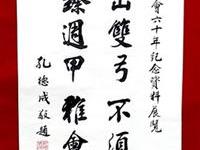 會六十年記念資料展覽
山雙弓不須
臻週甲雅會
孔德成敬題